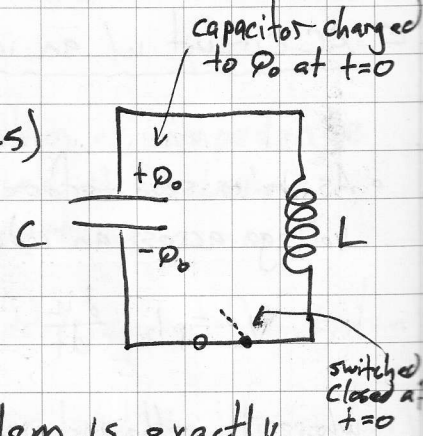 capacitor charged
to Q₀ at t=0
s)
+Q₀
C
-Q₀
L
switched
closed a
t=0
is exactly